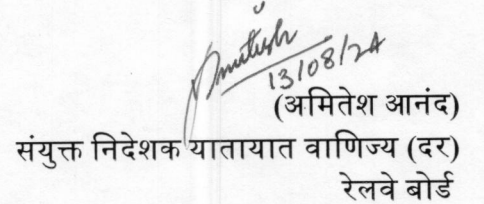 Amitesh
13/08/24
(अमितेश आनंद)
संयुक्त निदेशक यातायात वाणिज्य (दर)
रेलवे बोर्ड